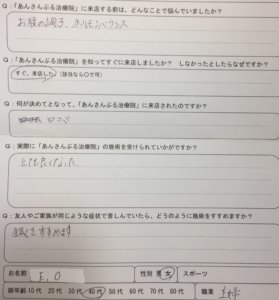 Q：「あんさんぶる治療院」に来店する前は、どんなことで悩んでいましたか？
お腹の調子、ホルモンバランス
Q：「あんさんぶる治療院」を知ってすぐに来店しましたか？　しなかったとしたらなぜですか？
すぐ、来店した（該当なら○で可）
Q：何が決めてとなって、「あんさんぶる治療院」に来店されたのですか？
口コミ
Q：実際に「あんさんぶる治療院」の施術を受けられていかがですか？
とても良くなった
Q：友人やご家族が同じような症状で苦しんでいたら、どのように施術をすすめますか？
鍼をすすめます
お名前 E.O 性別 男 女 スポーツ
御年齢 10代 20代 30代 40代 50代 60代 70代 80代 職業 主婦